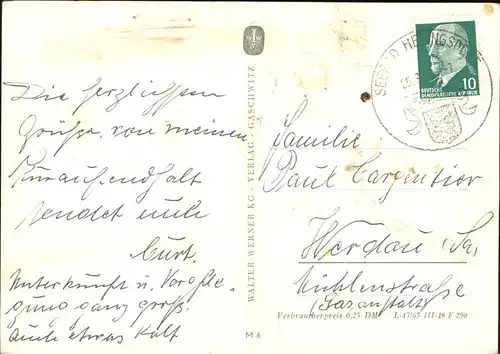 Die herzlichsten
Grüße, von meinem
Kuraufendhalt
sendet euch
Curt.
Unterkunft u. Verpfle-
gung ganz groß.
auch etwas kalt
WALTER WERNER KG - VERLAG - GASCHWITZ
M 6
SEEBAD HERINGSDORF
DEUTSCHE
DEMOKRATISCHE REPUBLIK
10
Familie
Paul Carpentier
Werdau (Sa)
Mühlenstraße
(Gasanstalt)
Verbraucherpreis 0,25 DM L-47/65 III-18 F 290